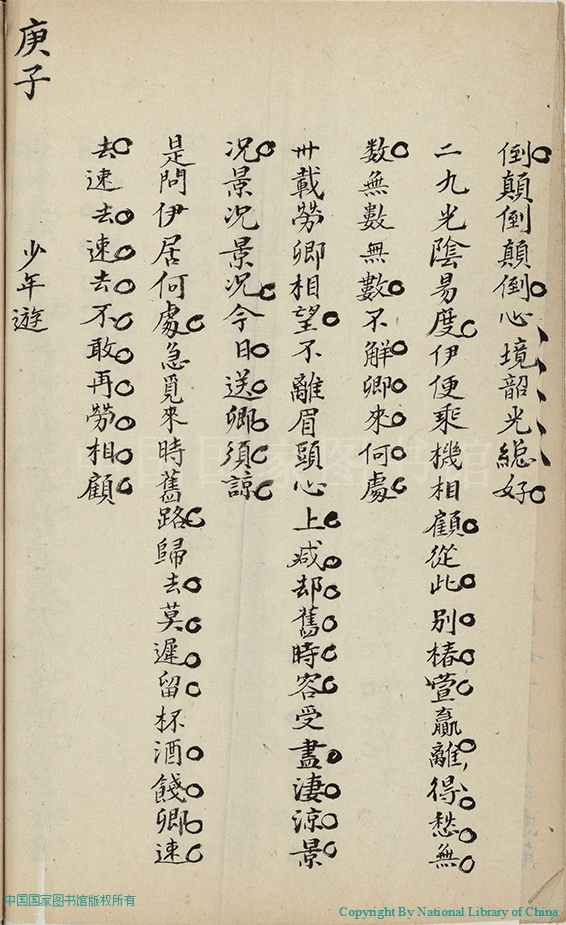 倒顛倒顛倒心境韶光縂好
二九光陰易度伊便乘機相顧從此別椿萱贏離得愁無
数無數無數不解卿來何處
卅載勞卿相望不離眉頭心上減却舊時容受盡淒涼景
况景况景况今日送卿須諒
是問伊居何處急覓來時舊路歸去莫遲留杯酒餞卿速
去速去速去不敢再勞相顧
庚子
少年遊
中国国家图书馆
中国国家图书馆版权所有
Copyright By National Library of China